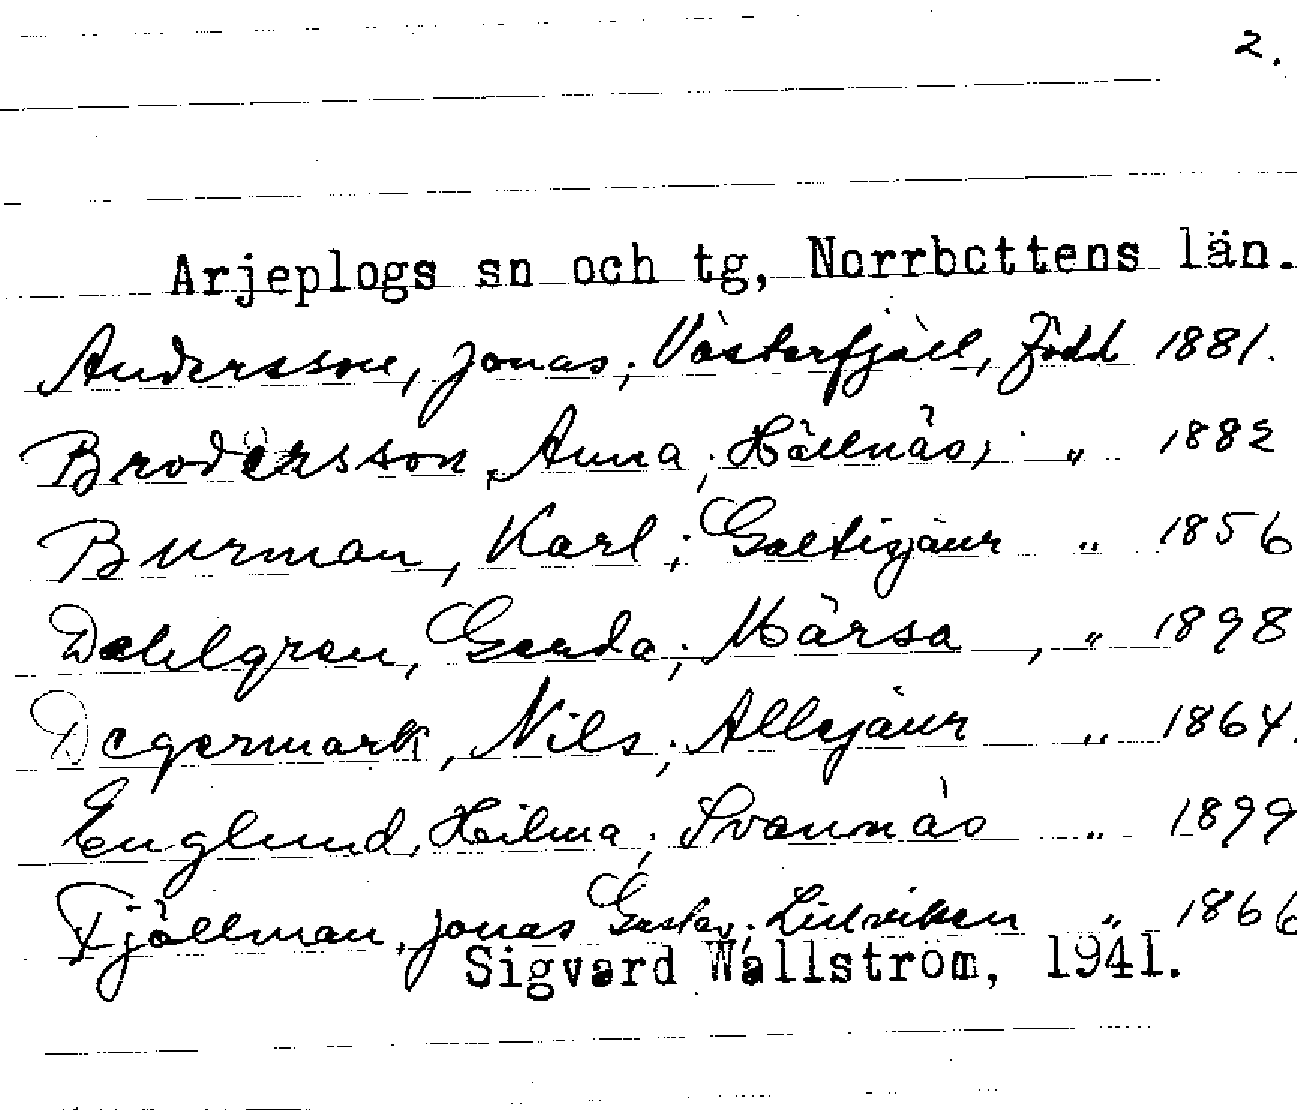 2.
Arjeplogs sn och tg, Norrbottens län.
Andersson, Jonas; Västerfjäll, född 1881.
Brodersson, Anna; Hällnäs, " 1882
Burman, Karl; Galtisjaur " 1856
Dahlgren, Gerda; Mårsa, " 1898
Degermark, Nils; Allejaur " 1864.
Englund, Hilma; Svannäs " 1899
Fjällman, Jonas Gustav; " 1866
Sigvard Wallström, 1941.